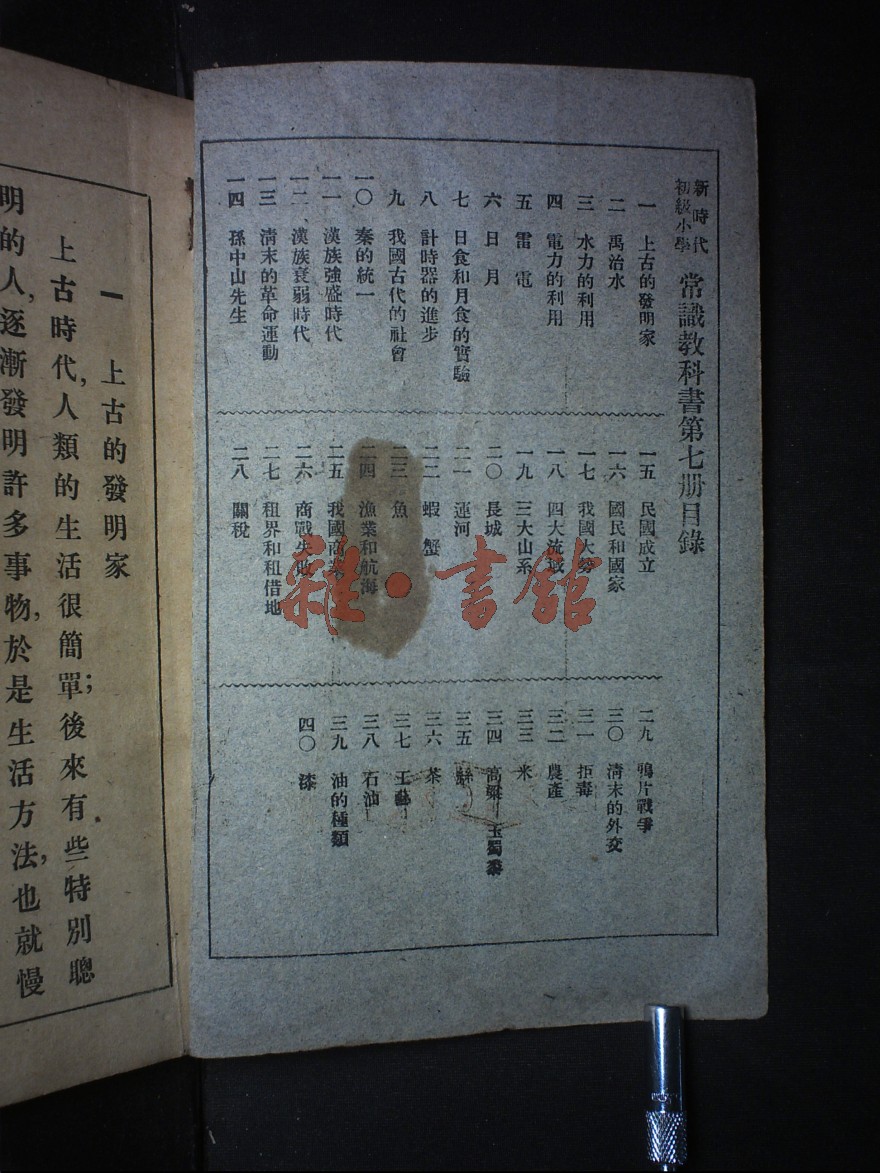 新時代
初級小學
常識教科書第七册目錄
一 上古的發明家
二 禹治水
三 水力的利用
四 電力的利用
五 雷電
六 日月
七 日食和月食的實驗
八 計時器的進步
九 我國古代的社會
一〇 秦的統一
一一 漢族強盛時代
一二 漢族衰弱時代
一三 清末的革命運動
一四 孫中山先生
一五 民國成立
一六 國民和國家
一七 我國大勢
一八 四大流域
一九 三大山系
二〇 長城
二一 運河
二二 蝦蟹
二三 魚
二四 漁業和航海
二五 我國商業
二六 商戰失敗
二七 租界和租借地
二八 關稅
二九 鴉片戰爭
三〇 清末的外交
三一 拒毒
三二 農產
三三 米
三四 高粱 玉蜀黍
三五 絲
三六 茶
三七 工藝
三八 石油
三九 油的種類
四〇 漆
一 上古的發明家
上古時代,人類的生活很簡單;後來有些特別聰
明的人,逐漸發明許多事物,於是生活方法,也就慢
雜·書館